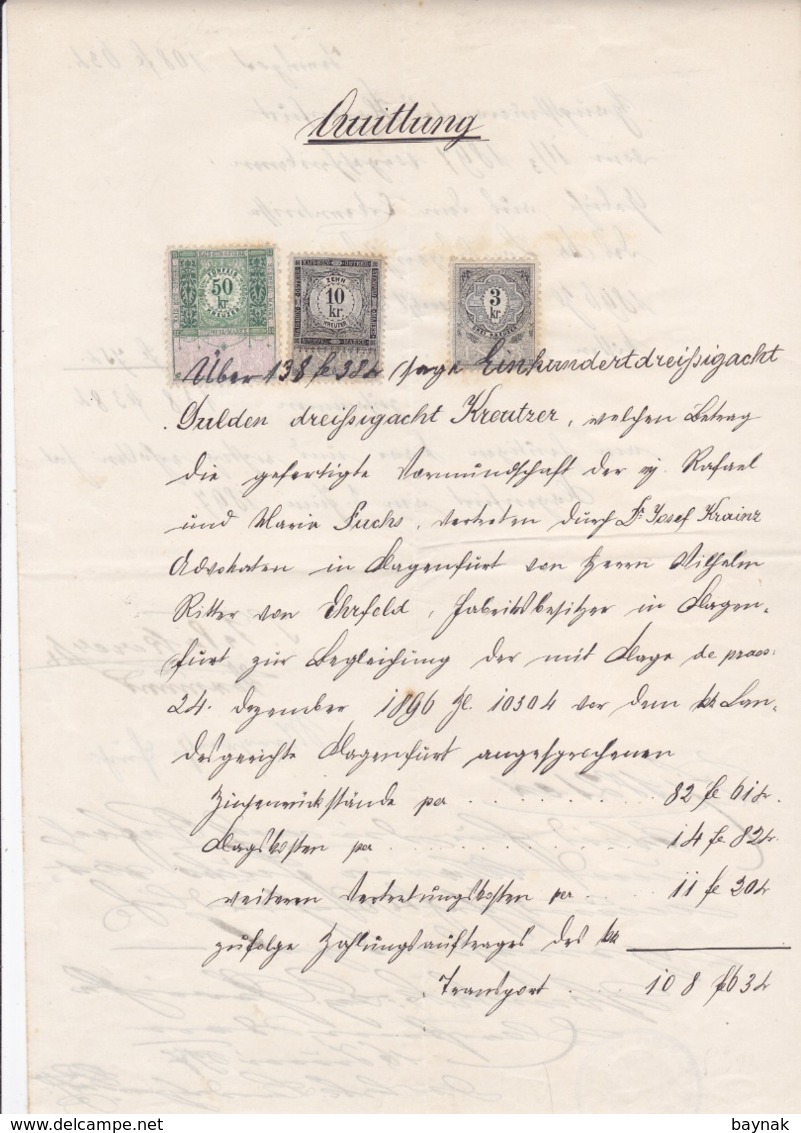 Quittung
50
kr
KREUZER
ZEHN
10
kr.
KREUZER
3
kr.
Über 138 fl 38 kr sage Einhundertdreißigacht
Gulden dreißigacht Kreutzer, welchen Betrag
die gefertigte Vormundschaft der mj. Rafael
und Maria Fuchs, vertreten durch Dr. Josef Krainz
Advokaten in Klagenfurt von Herrn Wilhelm
Ritter von Ehrfeld, Fabriksbesitzer in Klagen-
furt zur Begleichung der mit Klage de praes:
24. Dezember 1896 Zl. 10304 vor dem kk Lan-
desgerichte Klagenfurt angesprochenen
Zinsenrückstände per . . . . . . . . 82 fl 61 kr.
Klagskosten per . . . . . . . . 14 fl 82 kr.
weiteren Vertretungskosten per . . . . 11 fl 20 kr
zufolge Zahlungsauftrages des kk
Transport . . . . 108 fl 63 kr
baynak